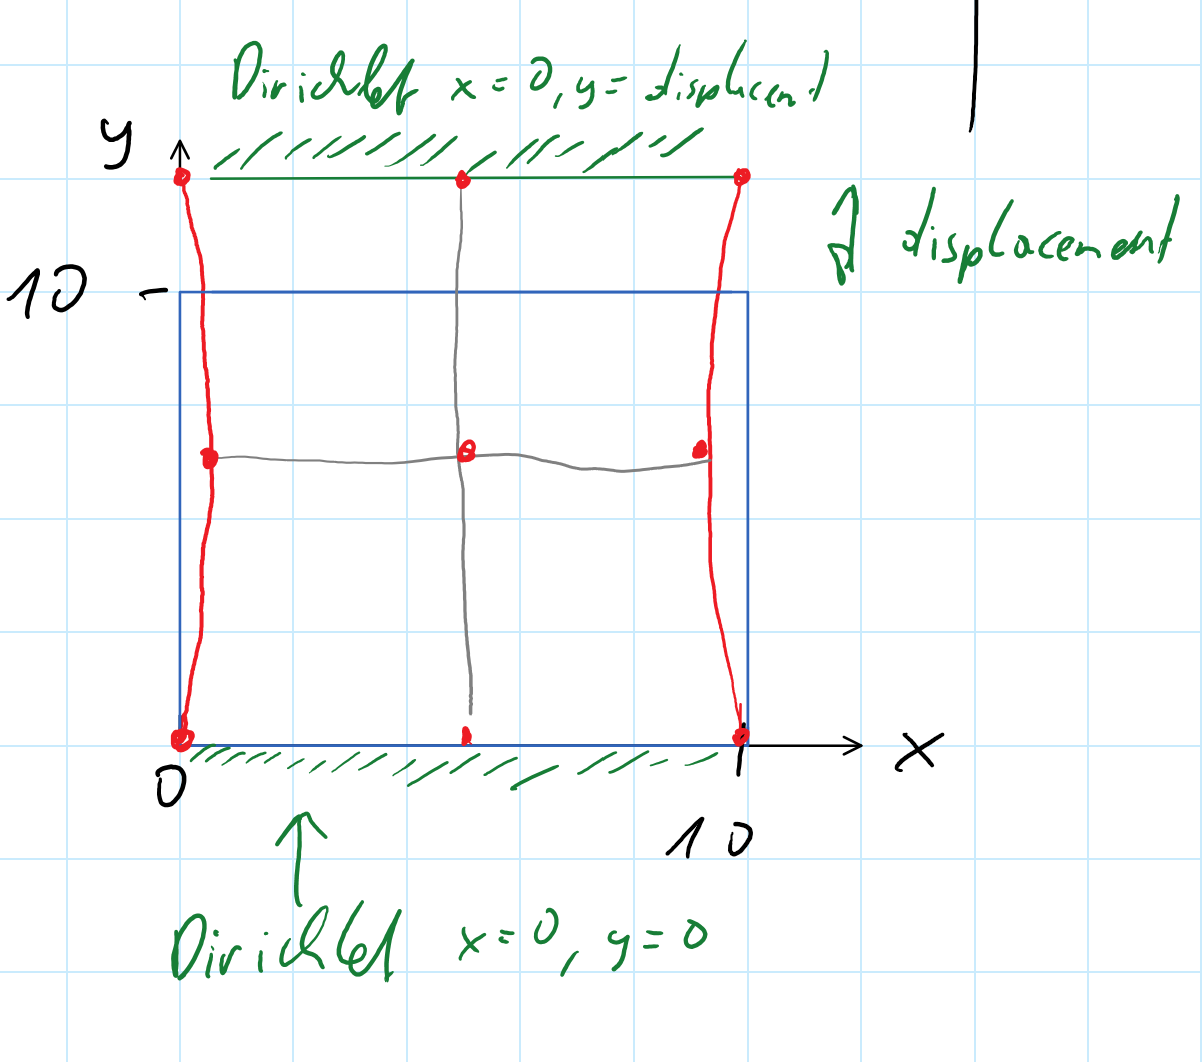 Dirichlet x = 0, y = displacent
y
displacement
10
x
0
10
Dirichlet x = 0, y = 0